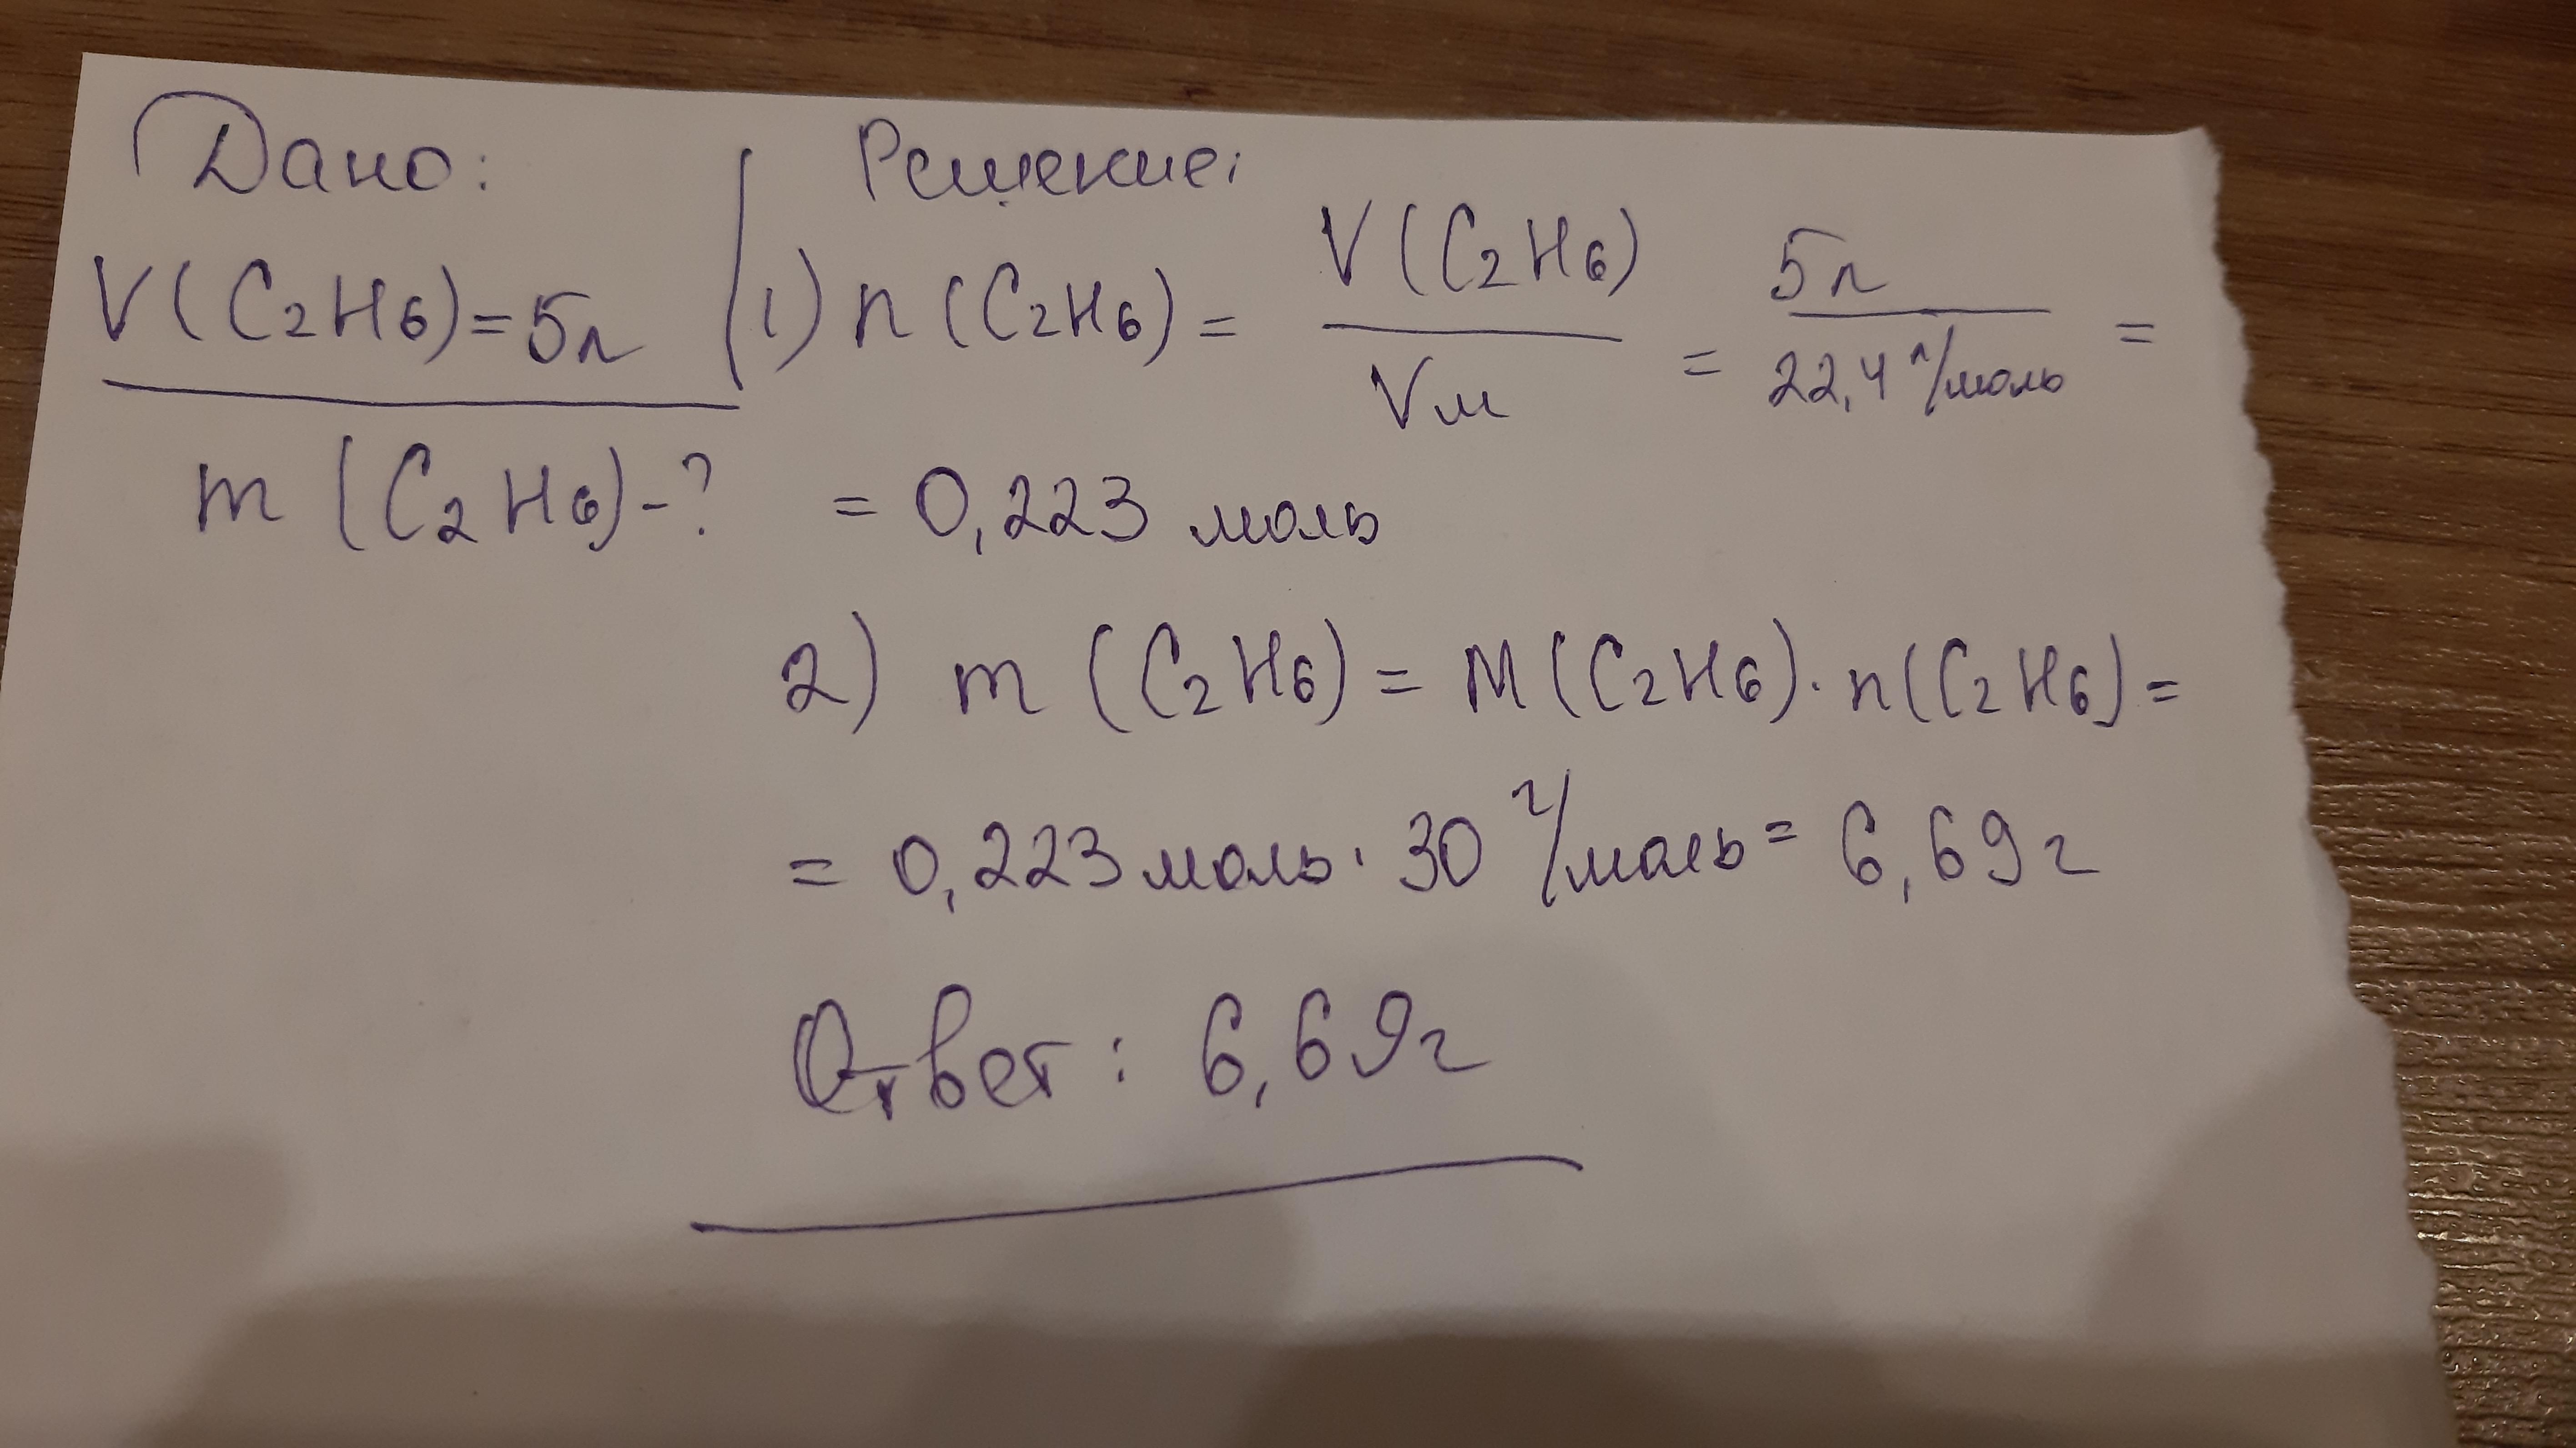 Дано:
V(C2H6)=5л
m(C2H6)-?
Решение:
1) n(C2H6) = V(C2H6) / Vм = 5л / 22,4 л/моль =
= 0,223 моль
2) m(C2H6) = M(C2H6) · n(C2H6) =
= 0,223 моль · 30 г/моль = 6,69г
Ответ: 6,69г